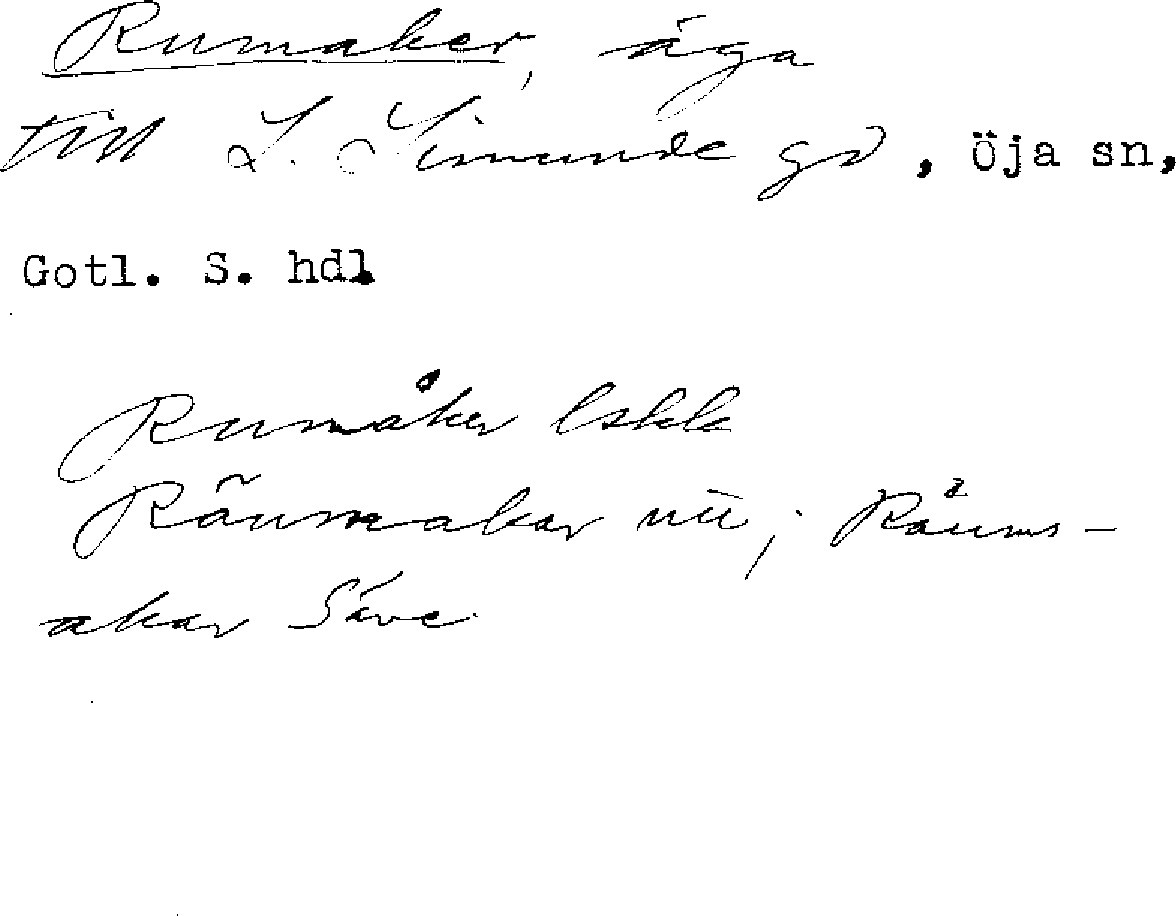 Rumaker, äga
till L. Simunde gd, Öja sn,
Gotl. S. hdl
Rumåker lskk
Rãumakar nu; Råums-
akar Säve